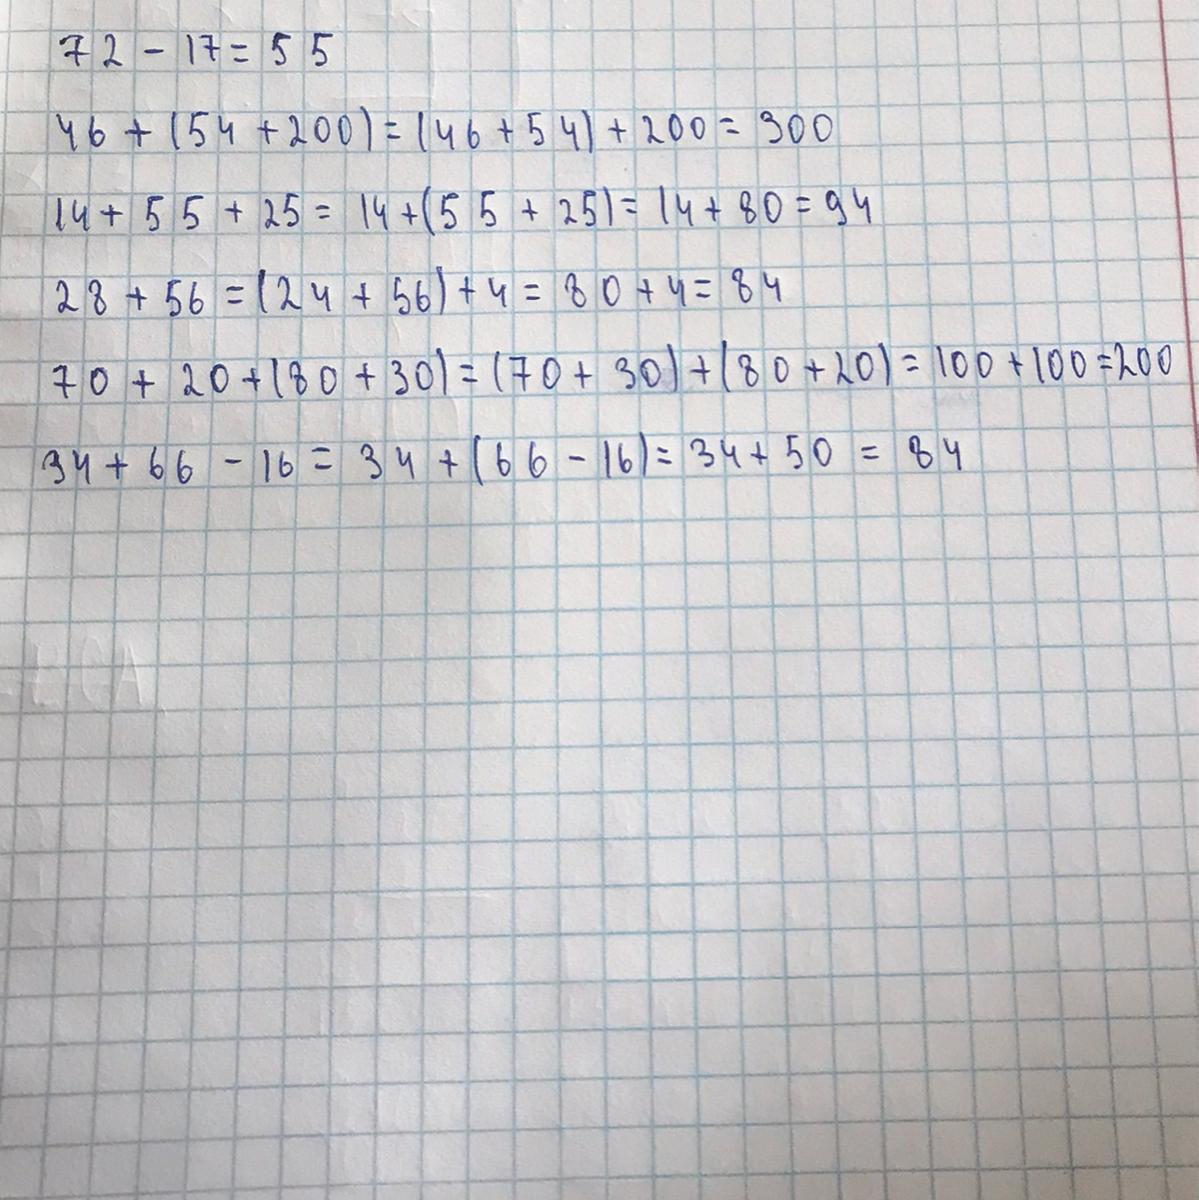 72 - 17 = 55
46 + (54 + 200) = (46 + 54) + 200 = 300
14 + 55 + 25 = 14 + (55 + 25) = 14 + 80 = 94
28 + 56 = (24 + 56) + 4 = 80 + 4 = 84
70 + 20 + (80 + 30) = (70 + 30) + (80 + 20) = 100 + 100 = 200
34 + 66 - 16 = 34 + (66 - 16) = 34 + 50 = 84